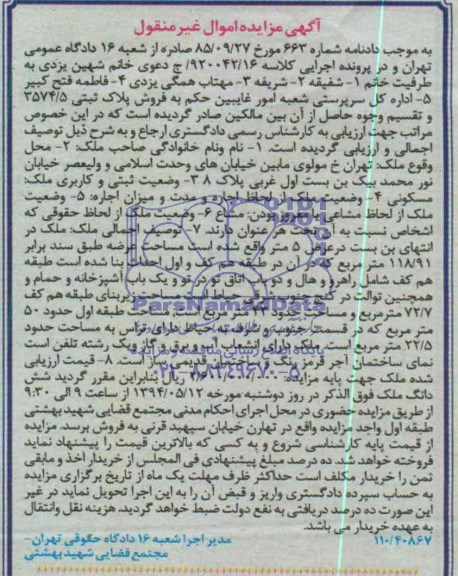 آگهی مزایده اموال غیر منقول
به موجب دادنامه شماره ۶۶۳ مورخ ۸۵/۰۹/۲۷ صادره از شعبه ۱۶ دادگاه عمومی
تهران و در پرونده اجرایی کلاسه ۹۲۰۰۴۲/۱۶/ ج دعوی خانم شهین یزدی به
طرفیت خانم ۱- شفیقه ۲- شریفه ۳- مهتاب همگی یزدی ۴- فاطمه فتح کبیر
۵- اداره کل سرپرستی شعبه امور غایبین حکم به فروش پلاک ثبتی ۳۵۷۴/۵
و تقسیم وجوه حاصل از آن بین مالکین صادر گردیده است که در این خصوص
مراتب جهت ارزیابی به کارشناس رسمی دادگستری ارجاع و به شرح ذیل توصیف
اجمالی و ارزیابی گردیده است. ۱- نام ونام خانوادگی صاحب ملک: ۲- محل
وقوع ملک: تهران خ مولوی مابین خیابان های وحدت اسلامی و ولیعصر خیابان
نور محمد بیک بن بست اول غربی پلاک ۸ ۳- وضعیت ثبتی و کاربری ملک:
مسکونی ۴- وضعیت ملک از لحاظ اجاره و مدت و میزان اجاره: ۵- وضعیت
ملک از لحاظ مشاعی یا مفروز بودن: مشاع ۶- وضعیت ملک از لحاظ حقوقی که
اشخاص نسبت به آن تحت هر عنوان دارند. ۷- توصیف اجمالی ملک: ملک در
انتهای بن بست در عرض ۵ متر واقع شده است مساحت عرصه طبق سند برابر
۱۱۸/۹۱ متر مربع که در آن در طبقه هم کف و اول احداث بنا شده است طبقه
هم کف شامل راهرو و هال و دو باب اتاق تو در تو و یک باب آشپزخانه و حمام و
همچنین توالت در گنج جنوبی است مساحت زیربنای طبقه هم کف
۷۲/۷ مترمربع و مساحت حدود متر مربع است مساحت طبقه اول حدود ۵۰
متر مربع که در قسمت جنوب و شرف به حیاط دارای تراس به مساحت حدود
۲۲/۵ متر مربع است. ملک دارای انشعاب آب و برق و گاز ویک رشته تلفن است
نمای ساختمان آجر قرمز رنگ و ساختمان قدیمی ساز است. ۸- قیمت ارزیابی
شده ملک جهت پایه مزایده: ریال بنابراین مقرر گردید شش
دانگ ملک فوق الذکر در روز دوشنبه مورخه ۱۳۹۴/۰۵/۱۲ از ساعت ۹ الی ۹:۳۰
از طریق مزایده حضوری در محل اجرای احکام مدنی مجتمع قضایی شهید بهشتی
طبقه اول واحد مزایده واقع در تهارن خیابان سپهبد قرنی به فروش برسد. مزایده
از قیمت پایه کارشناسی شروع و به کسی که بالاترین قیمت را پیشنهاد نماید
فروخته خواهد شد. ده درصد مبلغ پیشنهادی فی المجلس از خریدار اخذ و مابقی
ثمن را خریدار مکلف است حداکثر ظرف مهلت یک ماه از تاریخ برگزاری مزایده
به حساب سپرده دادگستری واریز و قبض آن را به این اجرا تحویل نماید در غیر
این صورت ده درصد دریافتی به نفع دولت ضبط خواهد گردید. هزینه نقل وانتقال
به عهده خریدار می باشد.
۱۱۰/۴۰۸۶۷ مدیر اجرا شعبه ۱۶ دادگاه حقوقی تهران-
مجتمع قضایی شهید بهشتی
ParsNamadData
پایگاه اطلاع رسانی مناقصه و مزایده
۰۲۱-۸۸۳۴۹۶۷۰-۵